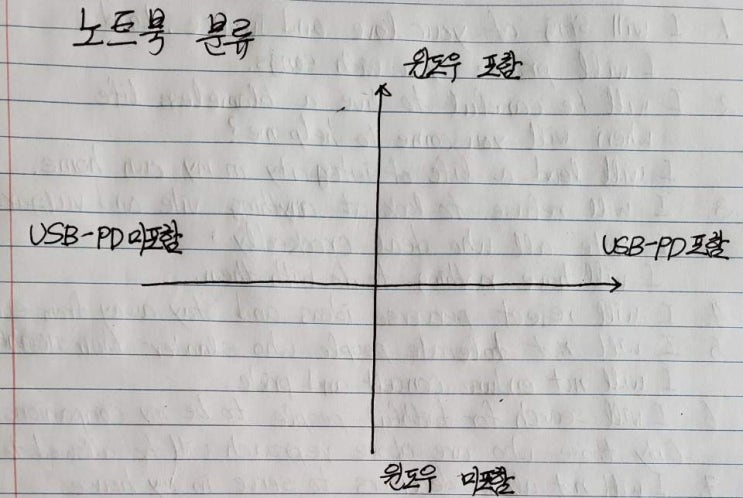 노트북 분류
윈도우 포함
USB-PD 미포함
USB-PD 포함
윈도우 미포함